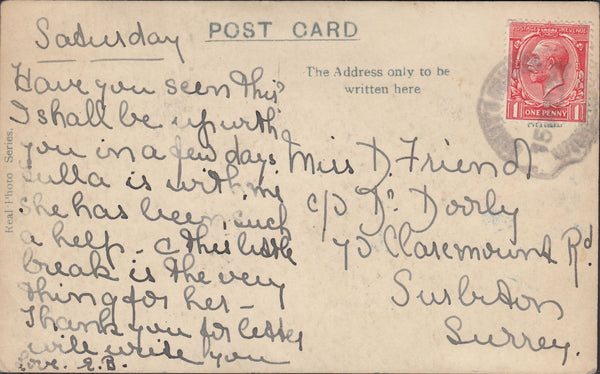 POST CARD
Saturday
The Address only to be
written here
Have you seen this
I shall be up with
you in a few days.
Lulla is with me
She has been such
a help - & this little
break is the very
thing for her -
Thank you for letter
will write you
Love. E.B.
Miss D. Friend
c/o Dr. Doorly
70 Claremount Rd.
Surbiton
Surrey.
Real Photo Series.
POSTAGE REVENUE
1 1
ONE PENNY